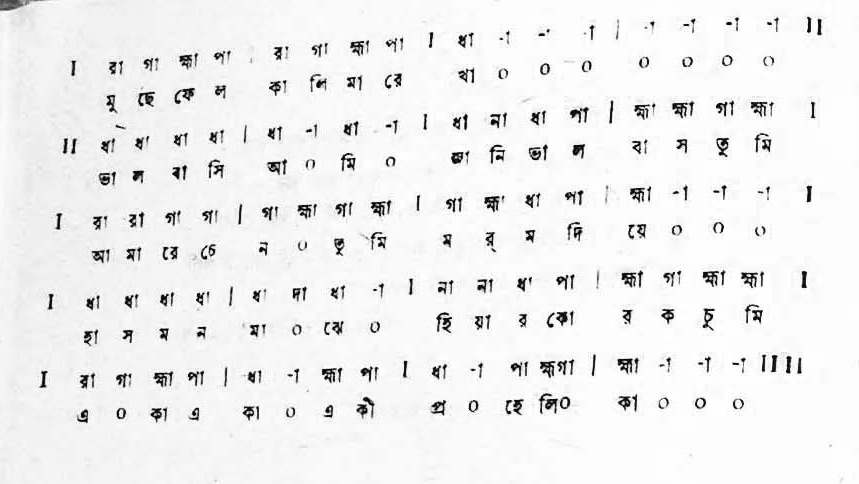 I রা গা হ্মা পা | রা গা হ্মা পা I ধা -া -া -া | -া -া -া -া II
মু ছে ফে ল কা লি মা রে খা ০ ০ ০ ০ ০ ০ ০
II ধা ধা ধা ধা | ধা -া ধা -া I ধা না ধা পা | হ্মা হ্মা গা হ্মা I
ভা ল বা সি আ ০ মি ০ জা নি ভা ল বা স তু মি
I রা রা গা গা | গা হ্মা গা হ্মা I গা হ্মা ধা পা | হ্মা -া -া -া I
আ মা রে চে ন ০ তু মি ম র্ ম দি য়ে ০ ০ ০
I ধা ধা ধা ধা | ধা দা ধা -া I না না ধা পা | হ্মা গা হ্মা হ্মা I
হা স ম ন মা ০ ঝে ০ হি য়া র কো র ক চু মি
I রা গা হ্মা পা | ধা -া হ্মা পা I ধা -া পা হ্মগা | হ্মা -া -া -া II II
এ ০ কা এ কা ০ এ কী প্র ০ হে লি০ কা ০ ০ ০